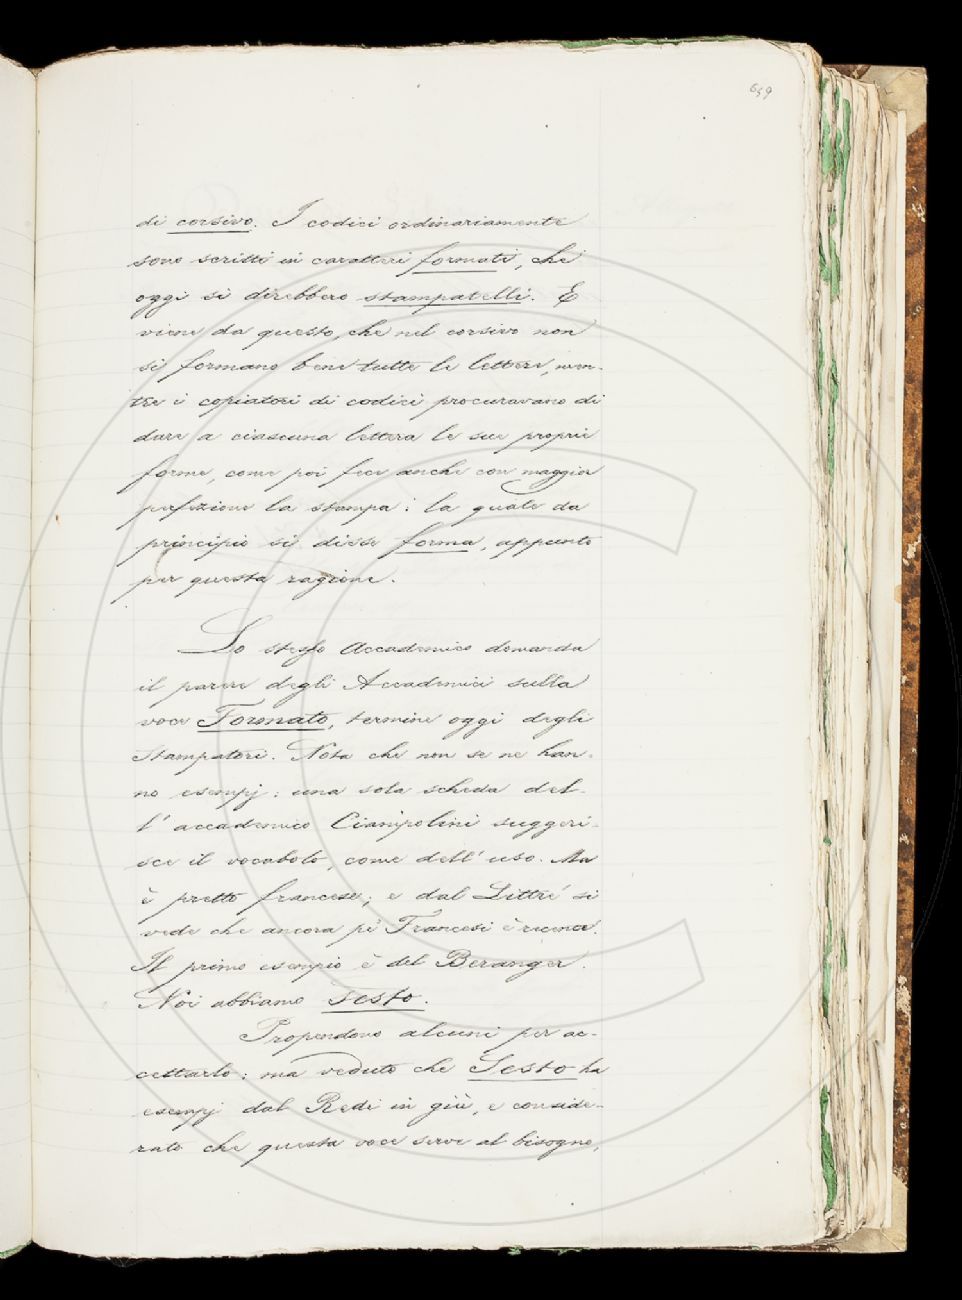 659
di corsivo. I codici ordinariamente
sono scritti in caratteri formati, che
oggi si direbbero stampatelli. E
viene da questo, che nel corsivo non
si formano bene tutte le lettere, men-
tre i copiatori di codici procuravano di
dare a ciascuna lettera le sue proprie
forme, come poi fece anche con maggior
perfezione la stampa: la quale da
principio si disse forma, appunto
per questa ragione.
Lo stesso Accademico domanda
il parere degli Accademici sulla
voce Formato, termine oggi degli
stampatori. Nota che non se ne han-
no esempj: una sola scheda del-
l'accademico Ciampolini suggeri-
sce il vocabolo, come dell'uso. Ma
è pretto francese; e dal Littré si
vede che ancora pe' Francesi è recente.
Il primo esempio è del Beranger.
Noi abbiamo sesto.
Propendono alcuni per ac-
cettarlo; ma veduto che Sesto ha
esempj dal Redi in giù, e conside-
rato che questa voce serve al bisogno,